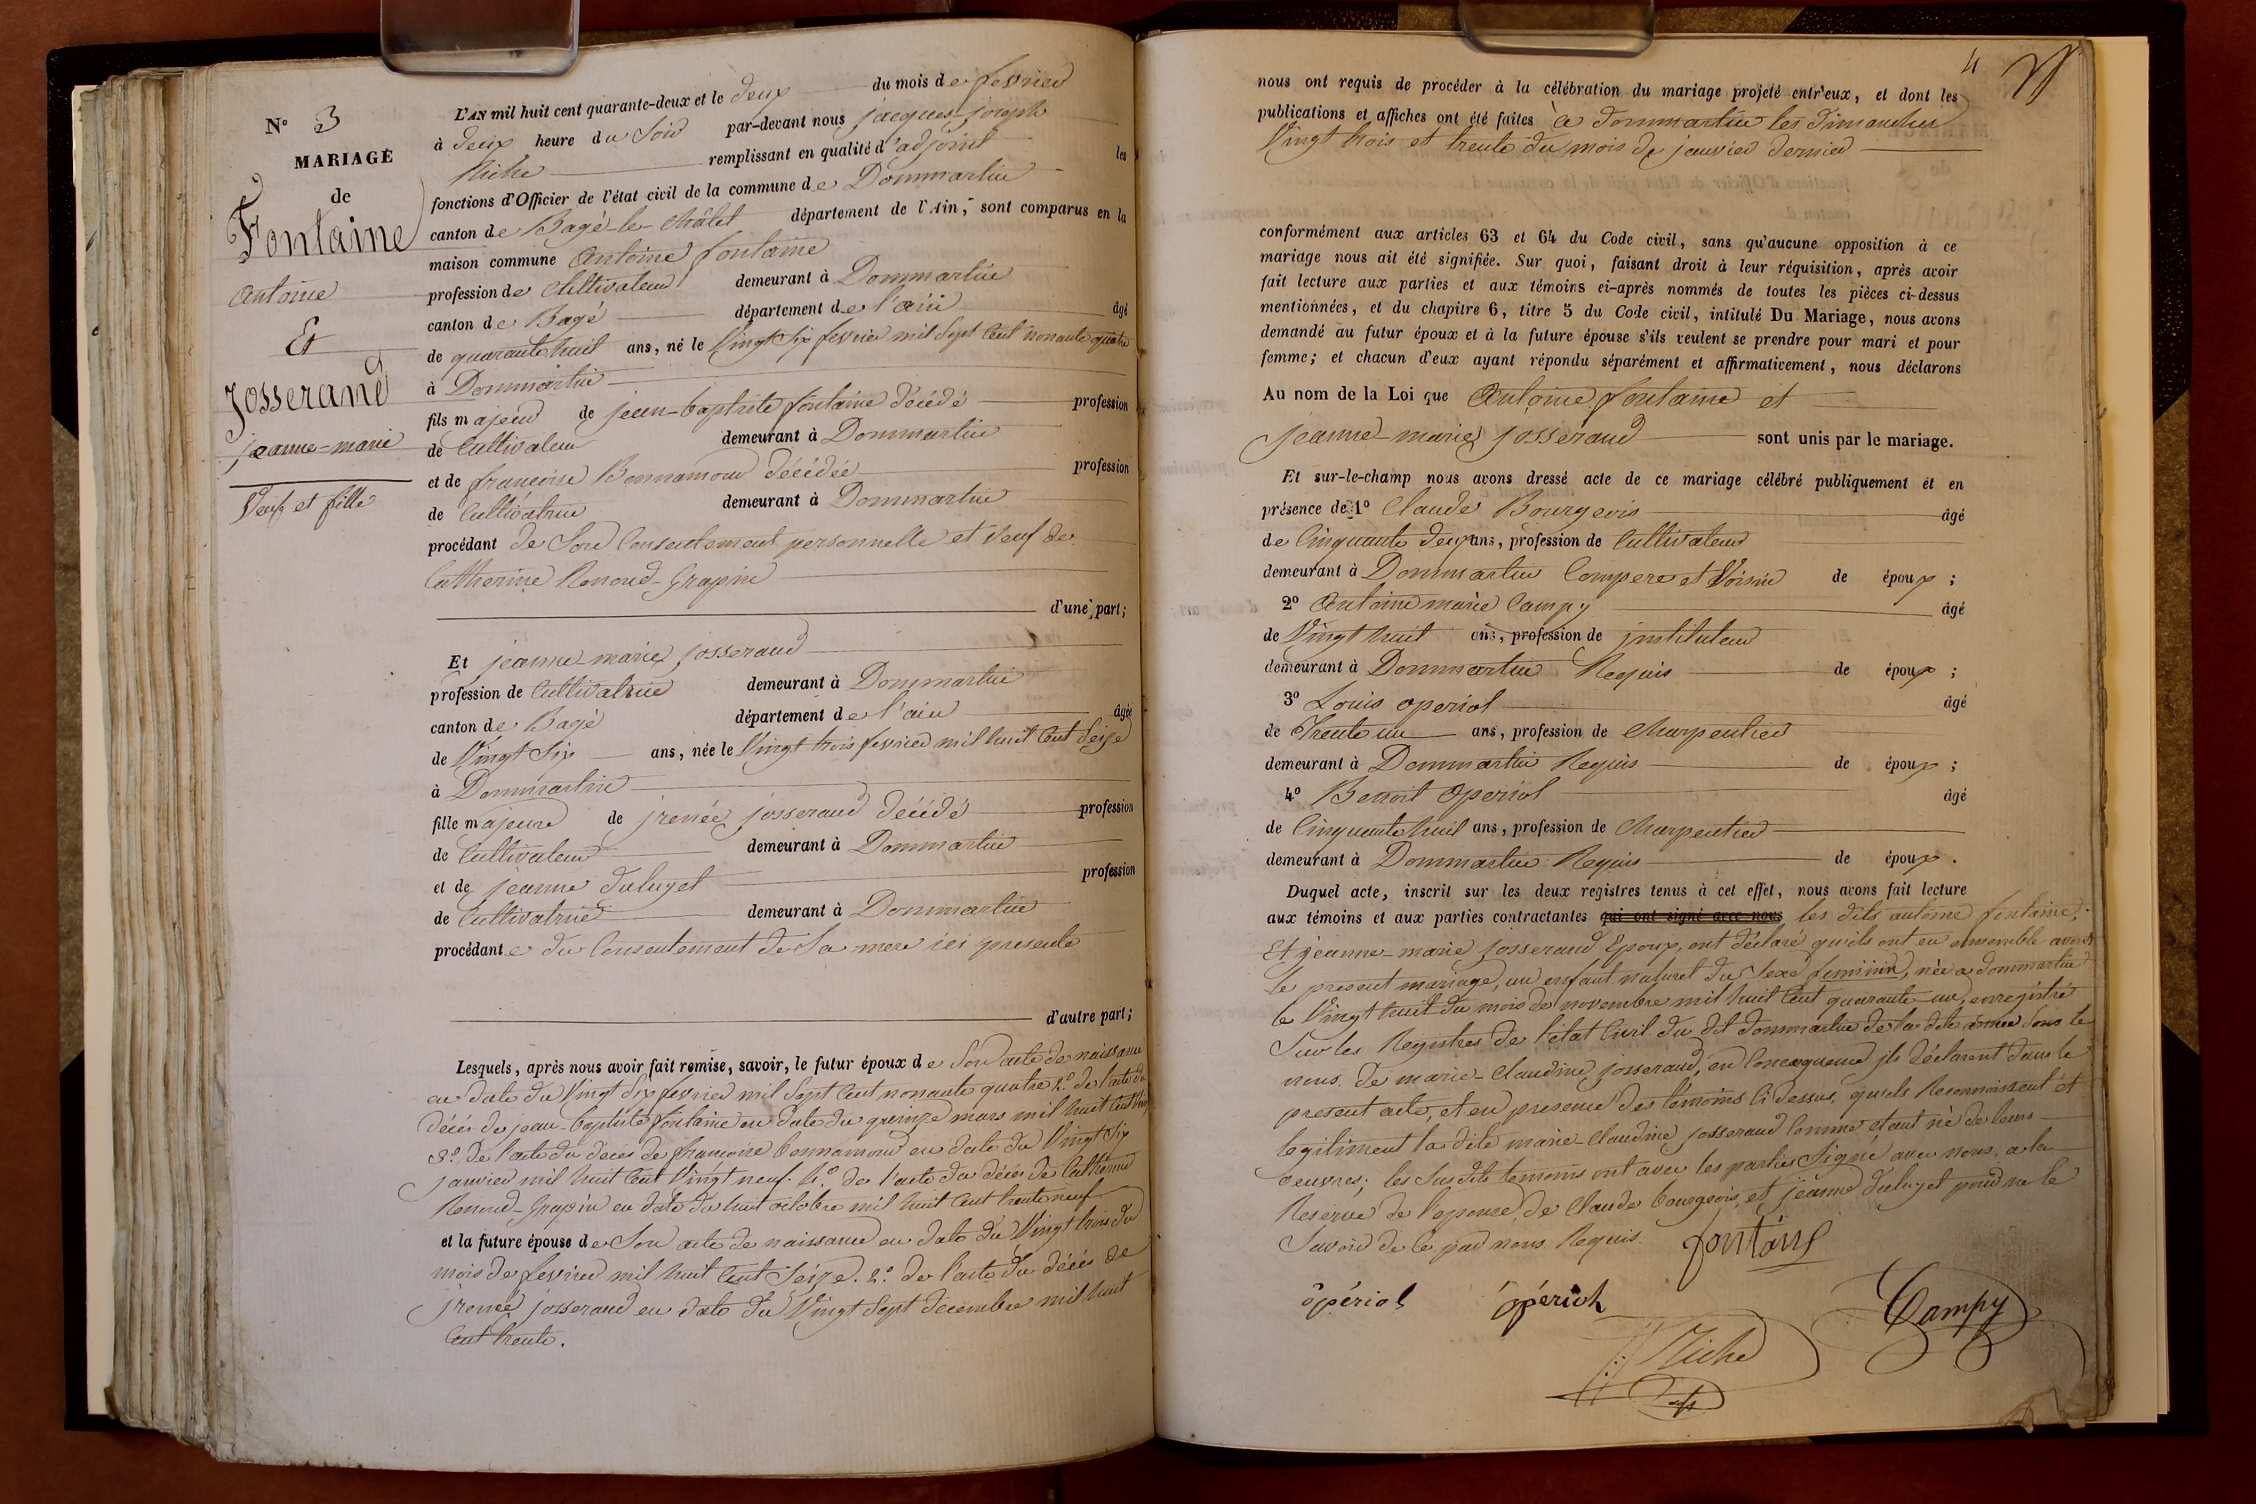 N° 3
MARIAGE
de
Fontaine
Antoine
Et
Josserand
jeanne-marie
Veuf et fille
L'AN mil huit cent quarante-deux et le deux du mois de fevrier
à deux heure du Soir par-devant nous jacques-joseph
Niche remplissant en qualité d'adjoint les
fonctions d'Officier de l'état civil de la commune de Dommartin
canton de Bagé-le-Châtel département de l'Ain, sont comparus en la
maison commune Antoine fontaine
profession de Cultivateur demeurant à Dommartin
canton de Bagé département de l'ain âgé
de quarante huit ans, né le Vingt Six fevrier mil Sept Cent nonante quatre
à Dommartin
fils majeur de jean-baptiste fontaine décédé profession
de Cultivateur demeurant à Dommartin
et de francoise Bonnamour décédée profession
de Cultivatrice demeurant à Dommartin
procédant de Son Consentement personnelle et Veuf de
Catherine Renoud-Grapin
d'une part;
Et jeanne-marie josserand
profession de Cultivatrice demeurant à Dommartin
canton de Bagé département de l'ain âgée
de Vingt Six ans, née le Vingt trois fevrier mil huit Cent Seize
à Dommartin
fille majeure de jrenée josserand décédé profession
de Cultivateur demeurant à Dommartin
et de jeanne duluyet profession
de Cultivatrice demeurant à Dommartin
procédante du Consentement de Sa mere ici presente
d'autre part;
Lesquels, après nous avoir fait remise, savoir, le futur époux de Son acte de naissance
en date du Vingt Six fevrier mil Sept Cent nonante quatre 2° de l'acte de
décés de jean-baptiste fontaine en date du quinze mars mil huit Cent
3° de l'acte du décés de francoise bonnamour en date du Vingt Six
janvier mil huit Cent Vingt neuf. 4° de l'acte du décés de Cathérine
Renoud-Grapin en date du huit octobre mil huit Cent trente neuf
et la future épouse de Son acte de naissance en date du Vingt trois du
mois de fevrier mil huit Cent Seize. 2° de l'acte du décés de
jrenée josserand en date du Vingt Sept décembre mil huit
Cent trente.
4
nous ont requis de procéder à la célébration du mariage projeté entr'eux, et dont les
publications et affiches ont été faites à dommartin les Dimanches
Vingt trois et trente du mois de janvier dernier
conformément aux articles 63 et 64 du Code civil, sans qu'aucune opposition à ce
mariage nous ait été signifiée. Sur quoi, faisant droit à leur réquisition, après avoir
fait lecture aux parties et aux témoins ci-après nommés de toutes les pièces ci-dessus
mentionnées, et du chapitre 6, titre 5 du Code civil, intitulé Du Mariage, nous avons
demandé au futur époux et à la future épouse s'ils veulent se prendre pour mari et pour
femme; et chacun d'eux ayant répondu séparément et affirmativement, nous déclarons
Au nom de la Loi que Antoine fontaine et
jeanne-marie josserand sont unis par le mariage.
Et sur-le-champ nous avons dressé acte de ce mariage célébré publiquement et en
présence de 1° Claude Bourgeois âgé
de Cinquante deux ans, profession de Cultivateur
demeurant à Dommartin Compere et Voisin de époux;
2° Antoine marie Campy âgé
de Vingt huit ans, profession de jnstituteur
demeurant à Dommartin Requis de époux;
3° Louis opériol âgé
de Trente un ans, profession de Charpentier
demeurant à Dommartin Requis de époux;
4° Benoit Opériol âgé
de Cinquante huit ans, profession de Charpentier
demeurant à Dommartin Requis de époux.
Duquel acte, inscrit sur les deux registres tenus à cet effet, nous avons fait lecture
aux témoins et aux parties contractantes qui ont signé avec nous les dits antoine fontaine,
Et jeanne-marie josserand Epoux, ont déclaré qu'ils ont eu ensemble avant
le present mariage, un enfant naturel du Sexe feminin, née a dommartin
le Vingt huit du mois de novembre mil huit Cent quarante-un, enregistré
Sur les Registres de l'état Civil du dit dommartin de la dite année Sous le
nom de marie-Claudine josserand, en Conséquence jls déclarent dans le
present acte, et en presence des témoins Ci dessus, qu'ils Reconnoissent et
legitiment la dite marie-Claudine josserand Comme étant né de leurs
oeuvres; les Susdits temoins ont avec les parties Signé avec nous, a la
Reserve de l'epouse, de Claude bourgeois, et jeanne duluyet pour ne le
Savoir de ce par nous Requis.
fontaine
opériol
opériol
Campy
Niche